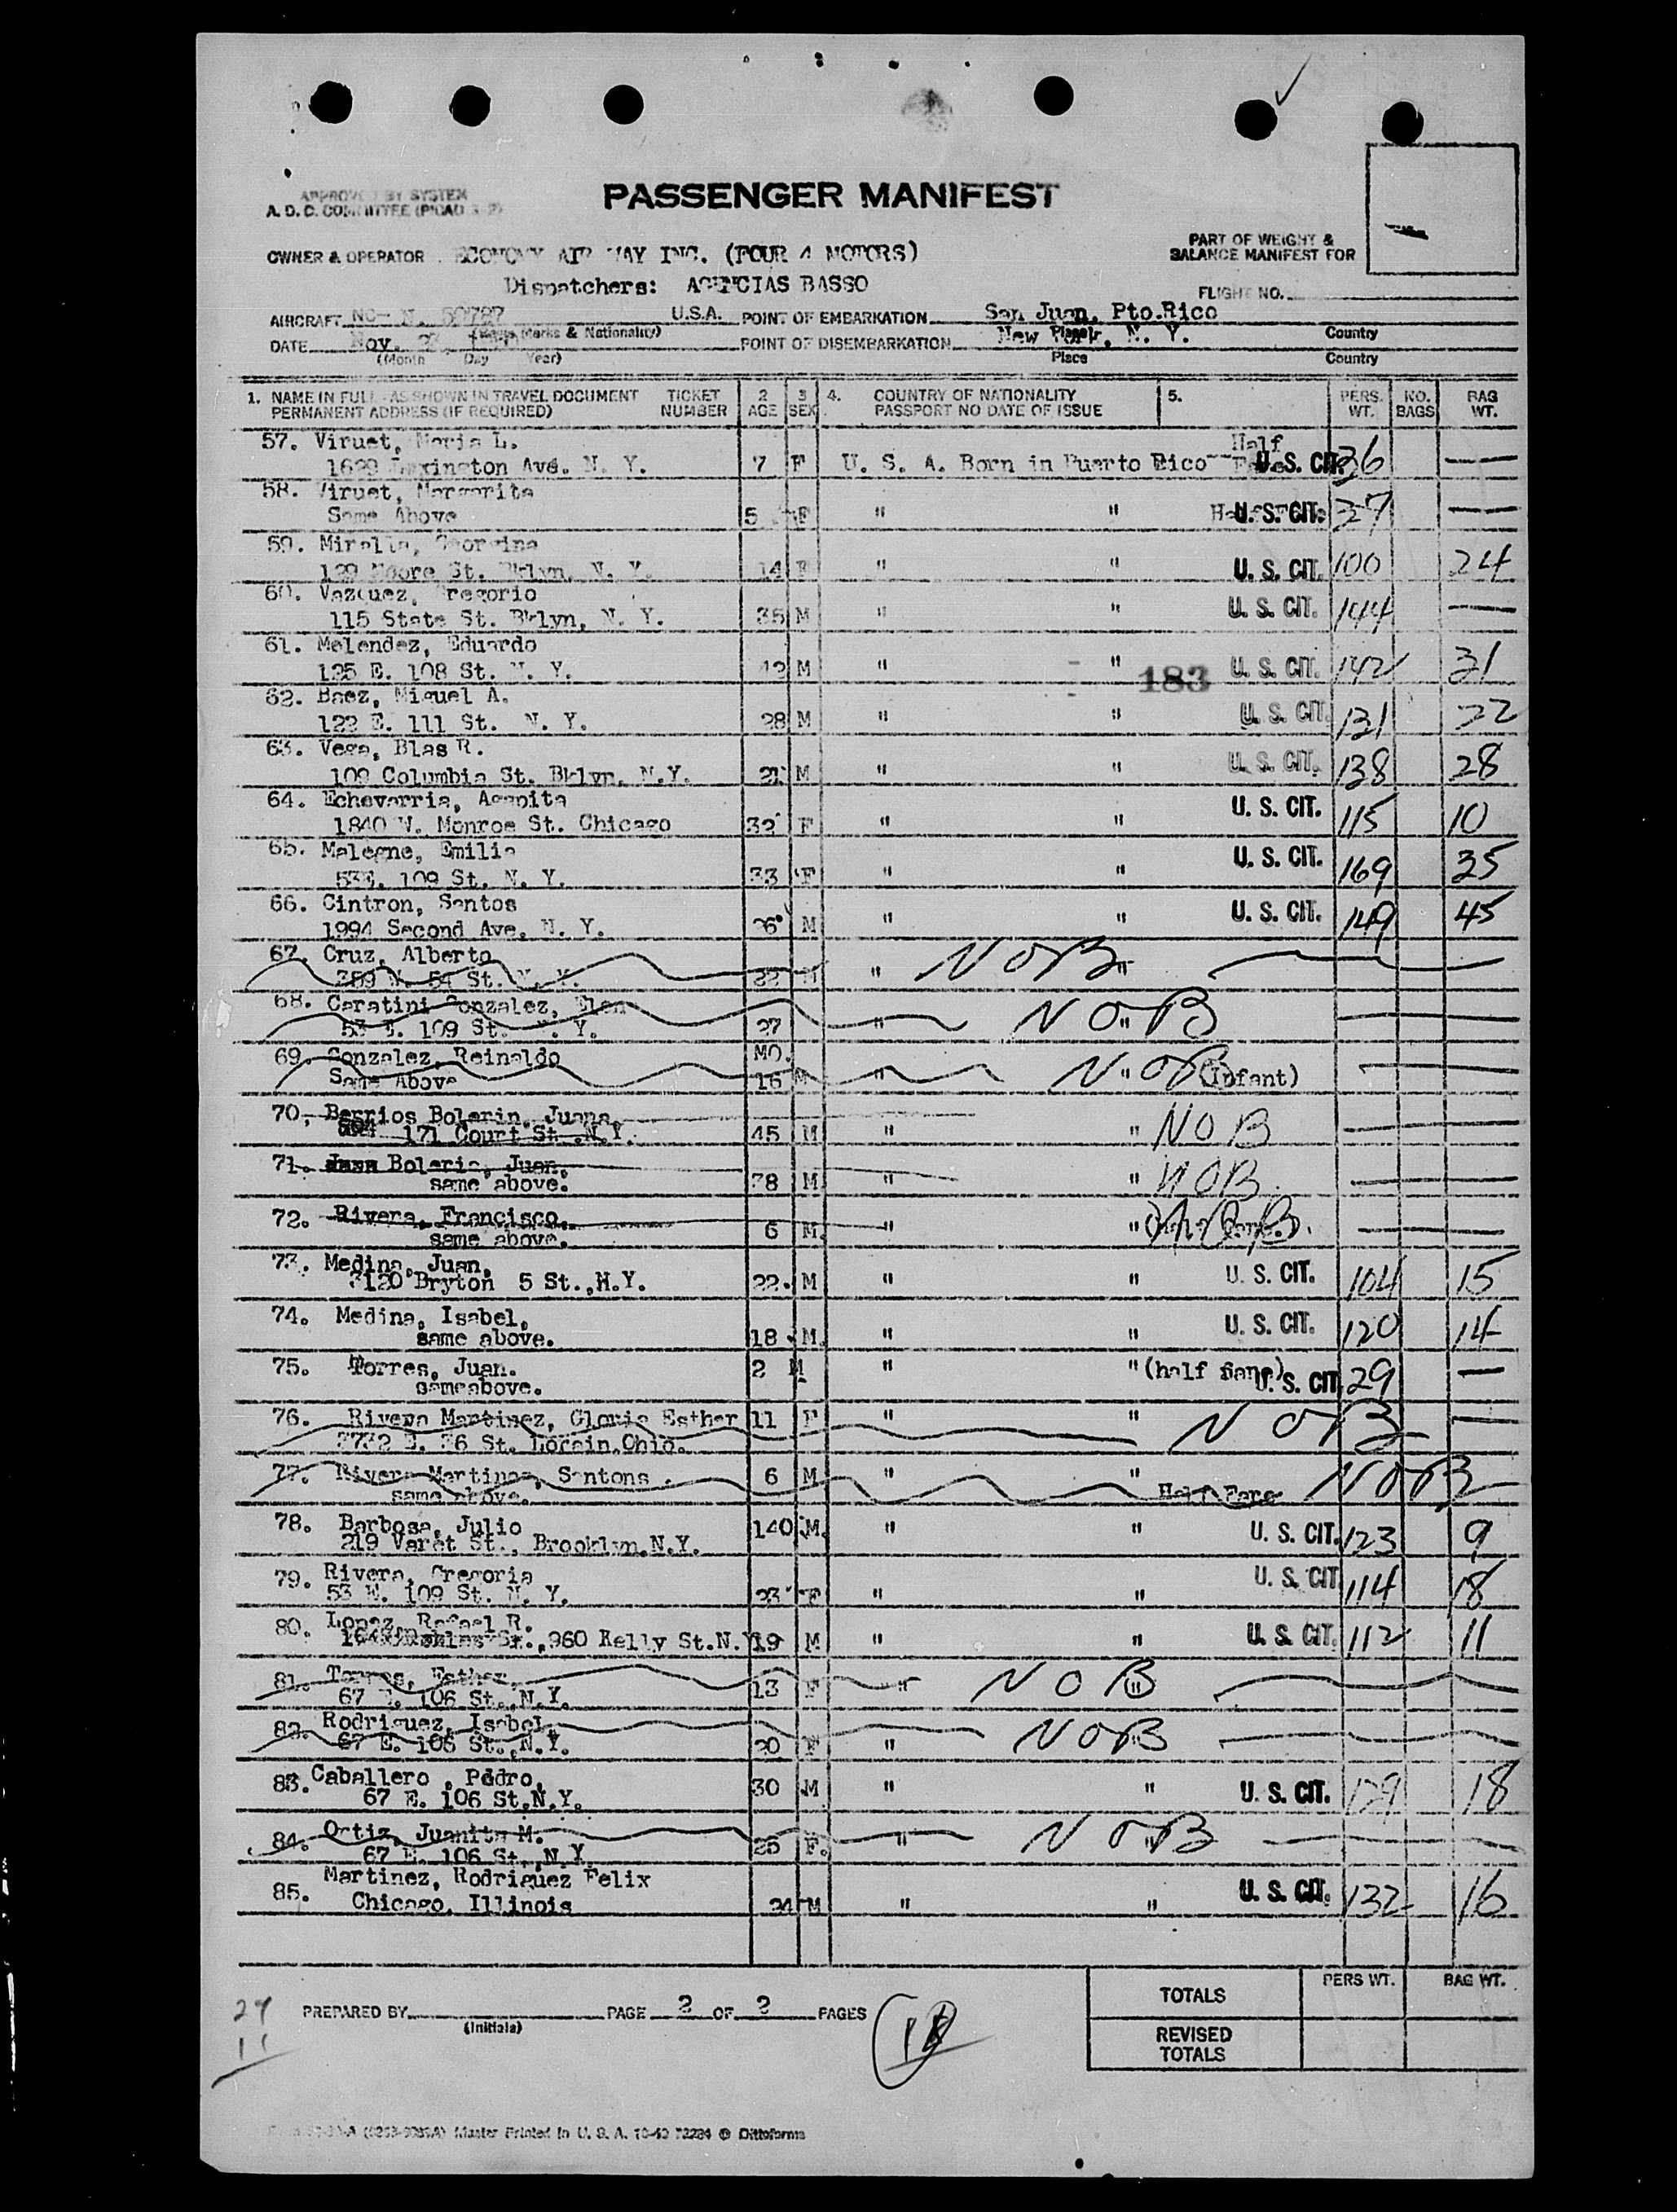 PASSENGER MANIFEST
APPROVED BY SYSTEM
A. D. C. COMMITTEE
PART OF WEIGHT &
BALANCE MANIFEST FOR
OWNER & OPERATOR ECONOMY AIR WAY INC. (FOUR 4 MOTORS)
Dispatchers: AGENCIAS BASSO
FLIGHT NO.
AIRCRAFT NC- N. U.S.A. POINT OF EMBARKATION San Juan, Pto.Rico
(Marks & Nationality) Place Country
DATE Nov. POINT OF DISEMBARKATION New York, N. Y.
(Month Day Year) Place Country
1. NAME IN FULL AS SHOWN IN TRAVEL DOCUMENT TICKET 2 3 4. COUNTRY OF NATIONALITY 5. PERS. NO. BAG
PERMANENT ADDRESS (IF REQUIRED) NUMBER AGE SEX PASSPORT NO DATE OF ISSUE WT. BAGS WT.
57. Viruet, Maria L. Half
1629 Lexington Ave. N. Y. 7 F U. S. A. Born in Puerto Rico -- U. S. CIT. 36 —
58. Viruet, Margarita
Same Above 5 F " " U. S. CIT. 37 —
59. Georgina
129 Moore St. Bklyn, N. Y. 14 F " " U. S. CIT. 100 24
60. Vazquez, Gregorio
115 State St. Bklyn, N. Y. 35 M " " U. S. CIT. 144 —
61. Melendez, Eduardo
125 E. 108 St. N. Y. 42 M " " 183 U. S. CIT. 142 31
62. Baez, Miguel A.
122 E. 111 St. N. Y. 28 M " " U. S. CIT. 131 22
63. Vega, Blas R.
109 Columbia St. Bklyn, N.Y. 21 M " " U. S. CIT. 138 28
64. Echevarria, Agapita
1840 W. Monroe St. Chicago 32 F " " U. S. CIT. 115 10
65. Malegne, Emilia
53E. 109 St. N. Y. 33 F " " U. S. CIT. 169 35
66. Cintron, Santos
1994 Second Ave, N. Y. 26 M " " U. S. CIT. 149 45
67. Cruz, Alberto
359 W. 54 St. N. Y. 22 M " NOB "
68. Caratini Gonzalez,
53 E. 109 St. N. Y. 27 " NOB "
69. Gonzalez, Reinaldo MO.
Same Above 16 M " NOB " (Infant)
70. Berrios Bolerin, Juana,
171 Court St. N.Y. 45 M " " NOB
71. Boleria, Juan,
same above. 38 M " " NOB
72. Rivera, Francisco,
same above. 6 M. " " NOB
73. Medina, Juan,
3120 Bryton 5 St.,N.Y. 22. M " " U. S. CIT. 104 15
74. Medina, Isabel,
same above. 18 M. " " U. S. CIT. 120 14
75. Torres, Juan. 2 M " " (half fare) U. S. CIT. 29 —
same above.
76. Rivera Martinez, Gloria Esther 11 F " " NOB —
3732 E. 36 St. Lorain,Ohio.
77. Rivera Martinez, Santons. 6 M " " NOB
same above. Half Fare
78. Barbosa, Julio 140 M. " " U. S. CIT. 123 9
219 Varet St., Brooklyn,N.Y.
79. Rivera, Gregoria
53 E. 109 St. N. Y. 23 F " " U. S. CIT 114 18
80. Lopez, Rafael R.
960 Kelly St.N.Y. 19 M " " U. S. CIT. 112 11
81. Torres, Esther,
67 E. 106 St.,N.Y. 13 F " NOB "
82. Rodriguez, Isabel,
67 E. 106 St.,N.Y. 20 F " NOB "
83. Caballero , Pedro,
67 E. 106 St.N.Y. 30 M " " U. S. CIT. 129 18
84. Ortiz, Juanita M.
67 E. 106 St.,N.Y. 25 F. " NOB "
85. Martinez, Rodriguez Felix
Chicago, Illinois 24 M " " U. S. CIT. 132 16
TOTALS PERS WT. BAG WT.
REVISED
TOTALS
PREPARED BY PAGE 2 OF 2 PAGES
(Initials)
29
11
Master Printed in U. S. A. Dittoforms